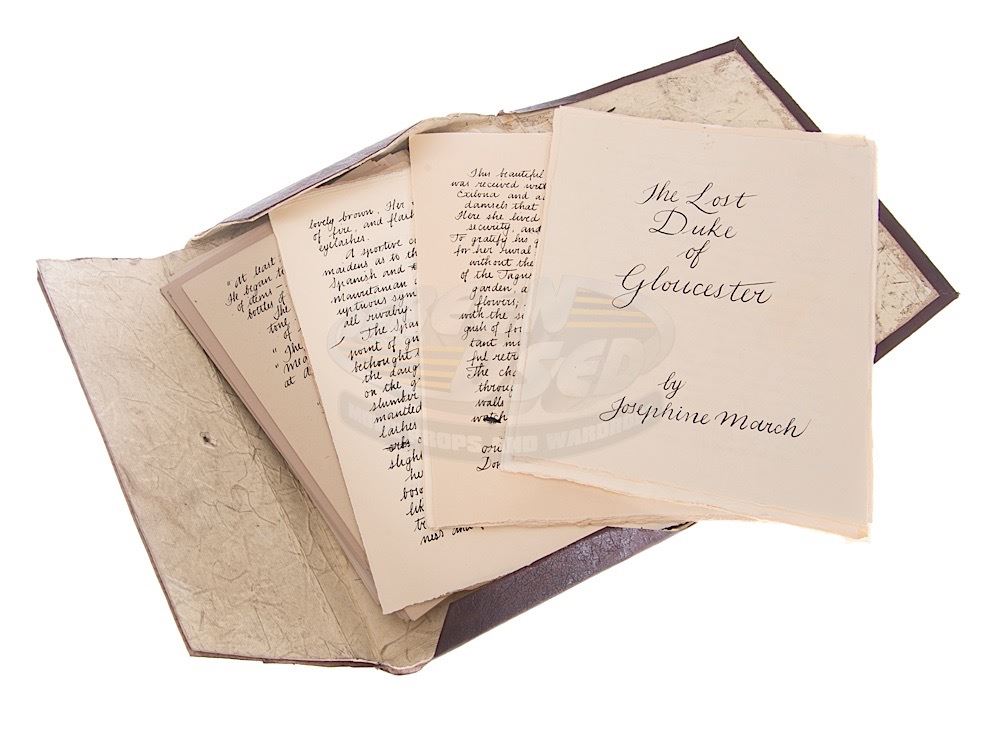 The Lost
Duke
of
Gloucester
by
Josephine March
This beautiful
was received with
Exilona and
damsels that
Here she lived
security, and
To gratify his
for her rural
without the
of the Tagus
garden, a
flowers;
with the
gush of
tant
ful
The
throug
walls
watch
lovely brown. Her
of fire, and flash
eyelashes.
A sportive
maidens as to th
Spanish and
Mauritanian
uptuous sym
all rivalry.
The Spa
point of
bethought
the daug
on the
slumber
mantled
lashes
orbs
sligh
he
boso
lik
tr
ness and
"At least
He began t
of items -
bottles of
tone
of
"The
"mea
at a
SCREEN
USED
MOVIE PROPS AND WARDROBE